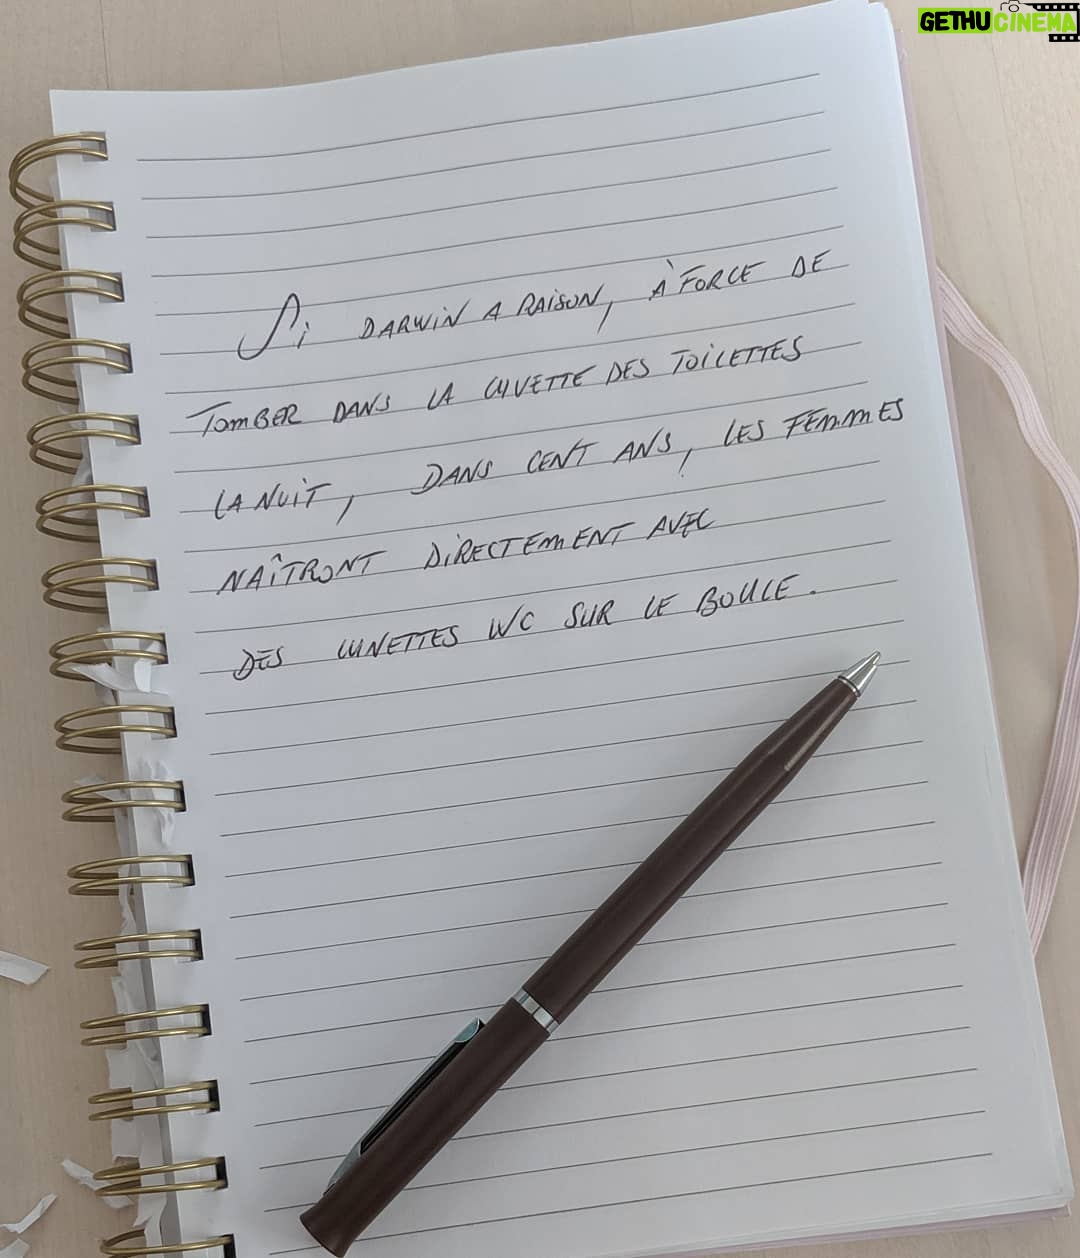 GETHUCINEMA
Si DARWiN A RAiSON, À FORCE DE
TOmBER DANS LA CUVETTE DES TOiLETTES
LA NUiT, DANS CENT ANS, LES FEmmES
NAÎTRONT DiRECTEmENT AVEC
DES LUNETTES WC SUR LE BOULE.